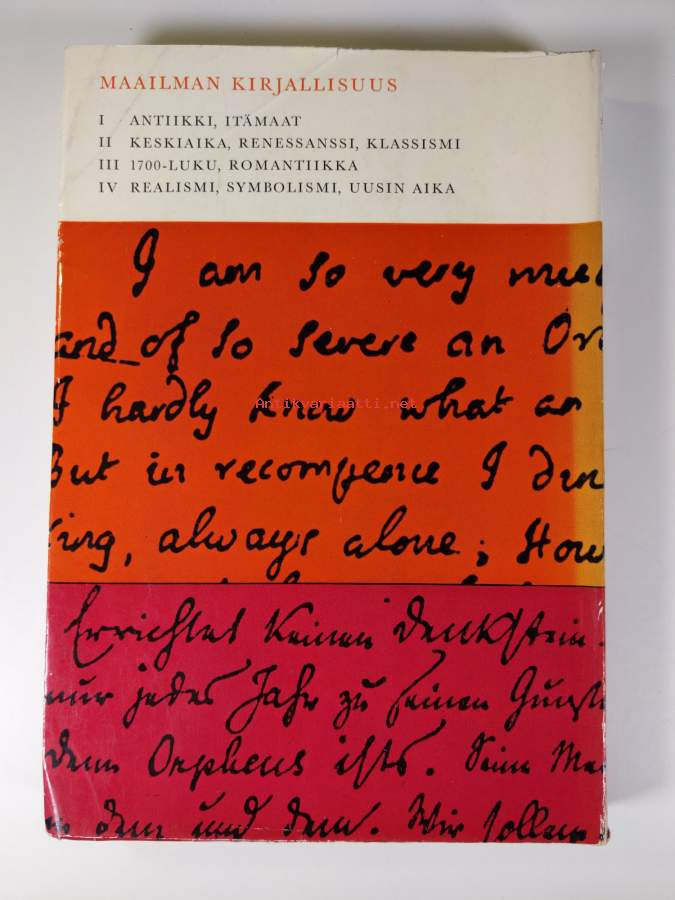 MAAILMAN KIRJALLISUUS
I ANTIIKKI, ITÄMAAT
II KESKIAIKA, RENESSANSSI, KLASSISMI
III 1700-LUKU, ROMANTIIKKA
IV REALISMI, SYMBOLISMI, UUSIN AIKA
I am so very muc
and of so severe an Or
I hardly know what an
Antikvariaatti.net
But in recompence I din
ing, always alone; How
Errichtet keinen Denkstein.
nur jedes Jahr zu seinen Gunste
Denn Orpheus ists. Seine Me
in dem und dem. Wir sollen